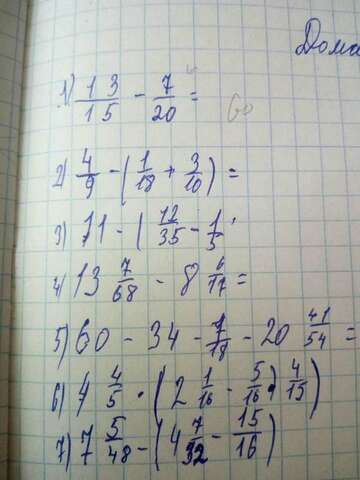 Дома
1) 13/15 - 7/20 = 60
2) 4/9 - (1/18 + 3/10) =
3) 11 - (12/35 - 1/5
4) 13 7/68 - 8 6/17 =
5) 60 - 34 - 7/18 - 20 41/54 =
6) 4 4/5 · (2 1/16 - 5/16) 4/15)
7) 7 5/48 - (4 7/32 - 15/16)